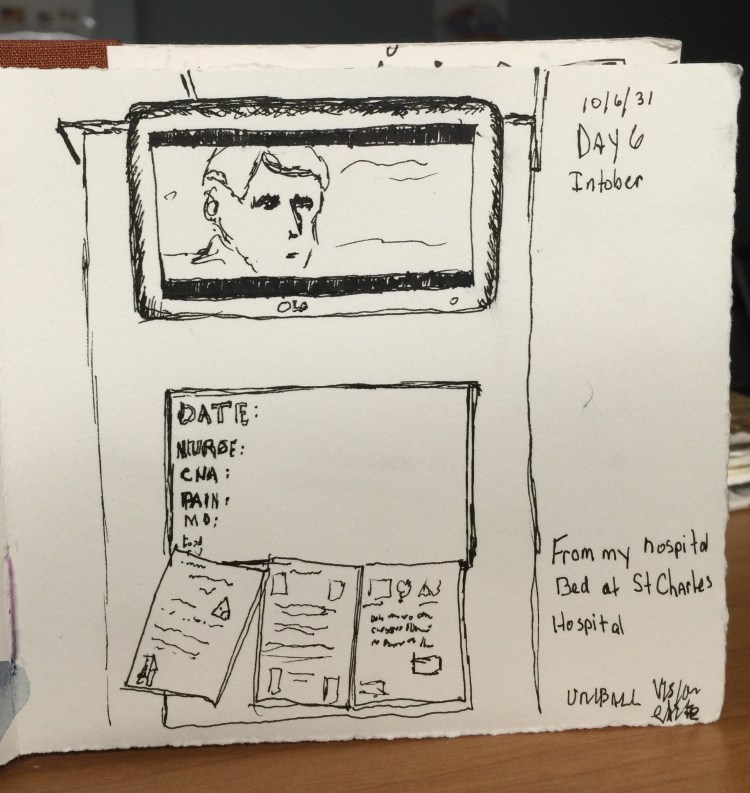 10/6/31
DAY 6
Intober
DATE:
NURSE:
CNA:
PAIN:
MD:
Food
From my hospital
Bed at St Charles
Hospital
UNIBALL Vision